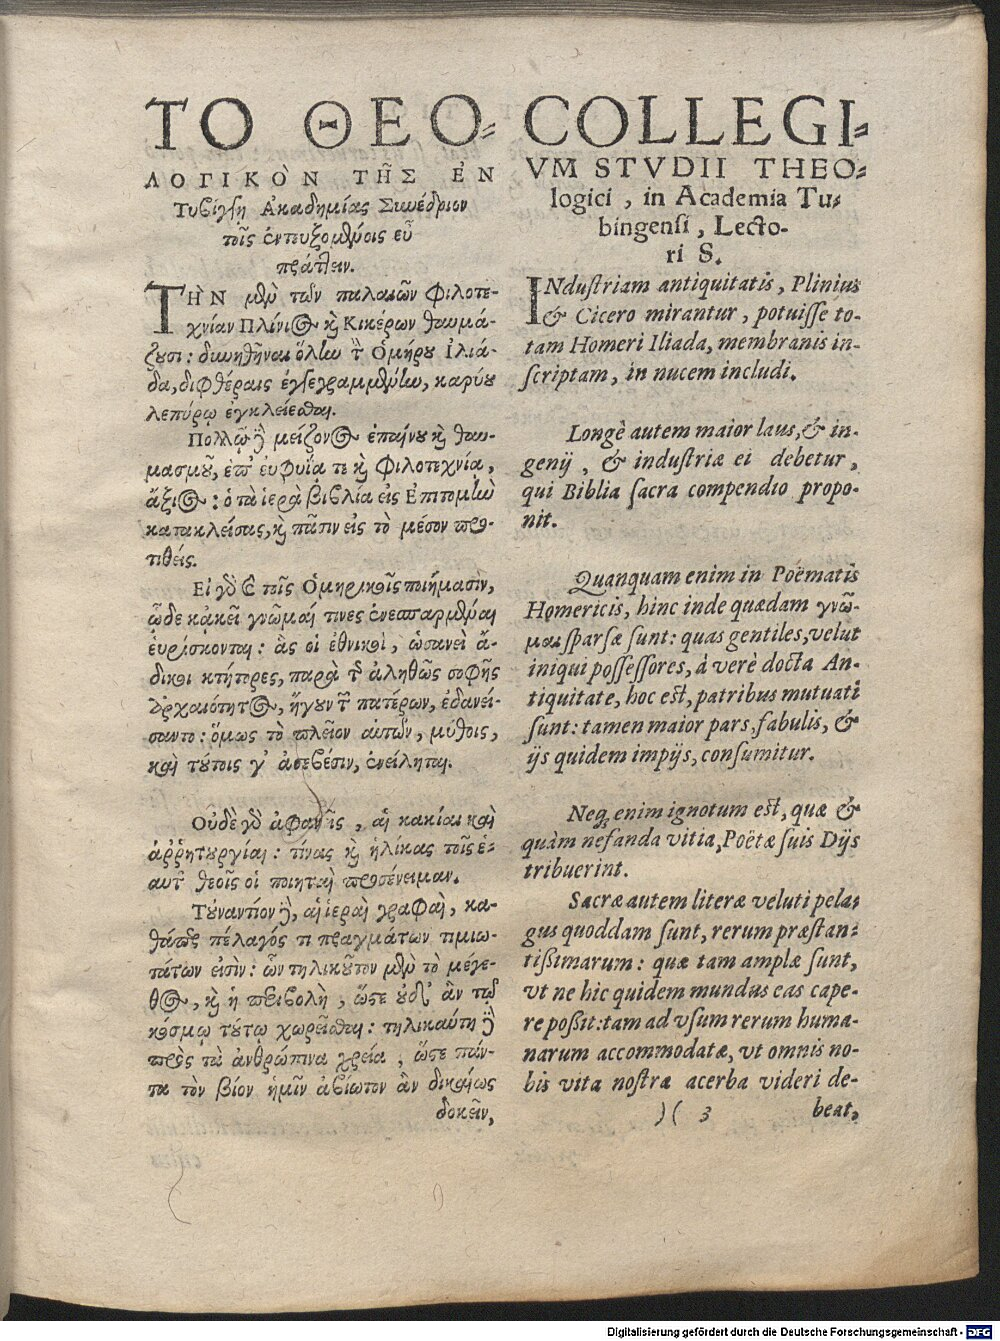 ΤΟ ΘΕΟ-
ΛΟΓΙΚῸΝ ΤΗ͂Σ ἘΝ
Τυβίγγῃ Ἀκαδημίας Συνέδριον
τοῖς ἐντευξομένοις εὖ
πράττειν.
ΤῊΝ μὲν τῶν παλαιῶν Φιλοτε-
χνίαν Πλίνιος καὶ Κικέρων θαυμά-
ζουσι: δυνηθῆναι ὅλην τὴν Ὁμήρου Ἰλιά-
δα, διφθέραις ἐγγεγραμμένην, καρύου
λεπύρῳ ἐγκλείεσθαι.
Πολλῷ δὲ μείζονος ἐπαίνου καὶ θαυ-
μασμοῦ, ἐπ' εὐφυΐᾳ τε καὶ Φιλοτεχνίᾳ,
ἄξιος: ὁ τὰ ἱερὰ βιβλία εἰς Ἐπιτομὴν
κατακλείσας, καὶ πᾶσιν εἰς τὸ μέσον προ-
τιθείς.
Εἰ γὰρ καὶ τοῖς Ὁμηρικοῖς ποιήμασιν,
ὧδε κἀκεῖ γνῶμαί τινες ἐνεσπαρμέναι
εὑρίσκονται: ἃς οἱ ἐθνικοὶ, ὡσανεὶ ἄ-
δικοι κτήτορες, παρὰ τῆς ἀληθῶς σοφῆς
ἀρχαιότητος, ἤγουν τῶν πατέρων, ἐδανεί-
σαντο: ὅμως τὸ πλεῖον αὐτῶν, μύθοις,
καὶ τούτοις γ' ἀσεβέσιν, ἐνείληπται.
Οὐδὲ γὰρ ἀφανεῖς, αἱ κακίαι καὶ
ἀῤῥητουργίαι: τίνας καὶ ἡλίκας τοῖς ἑ-
αυτῶν θεοῖς οἱ ποιηταὶ προσένειμαν.
Τοὐναντίον δὲ, αἱ ἱεραὶ γραφαὶ, κα-
θάπερ πέλαγός τι πραγμάτων τιμιω-
τάτων εἰσίν: ὧν τηλικοῦτον μὲν τὸ μέγε-
θος, καὶ ἡ περιβολὴ, ὥστε οὐδ' ἂν τῷ
κόσμῳ τούτῳ χωρεῖσθαι: τηλικαύτη δὲ
πρὸς τὰ ἀνθρώπινα χρεία, ὥστε πάν-
τα τὸν βίον ἡμῖν ἀβίωτον ἂν δικαίως
δοκεῖν,
COLLEGI-
VM STVDII THEO-
logici, in Academia Tu-
bingensi, Lecto-
ri S.
INdustriam antiquitatis, Plinius
& Cicero mirantur, potuisse to-
tam Homeri Iliada, membranis in-
scriptam, in nucem includi.
Longè autem maior laus, & in-
genij, & industriæ ei debetur,
qui Biblia sacra compendio propo-
nit.
Quanquam enim in Poëmatis
Homericis, hinc inde quædam γνῶ-
μαι sparsæ sunt: quas gentiles, velut
iniqui possessores, à verè docta An-
tiquitate, hoc est, patribus mutuati
sunt: tamen maior pars, fabulis, &
ijs quidem impijs, consumitur.
Neq; enim ignotum est, quæ &
quàm nefanda vitia, Poëtæ suis Dijs
tribuerint.
Sacræ autem literæ veluti pela-
gus quoddam sunt, rerum præstan-
tissimarum: quæ tam amplæ sunt,
vt ne hic quidem mundus eas cape-
re possit: tam ad vsum rerum huma-
narum accommodatæ, vt omnis no-
bis vita nostra acerba videri de-
)( 3 beat,
Digitalisierung gefördert durch die Deutsche Forschungsgemeinschaft - DFG